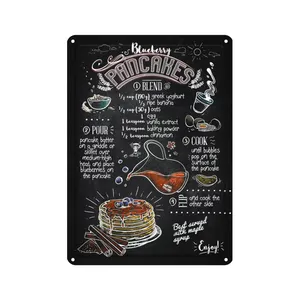 Blueberry
PANCAKES
① BLEND
1/2 cup (140g) greek yoghurt
1/2 ripe banana
1/2 cup (50g) oats
1 egg
1 teaspoon vanilla extract
1 teaspoon baking powder
1/2 teaspoon cinnamon
② POUR
pancake batter
on a griddle or
skillet over
medium-high
heat, and place
blueberries on
the pancake
③ COOK
until bubbles
pop on the
surface of
the pancake
④ FLIP and cook the
other side
Best served
with maple
syrup
Enjoy!